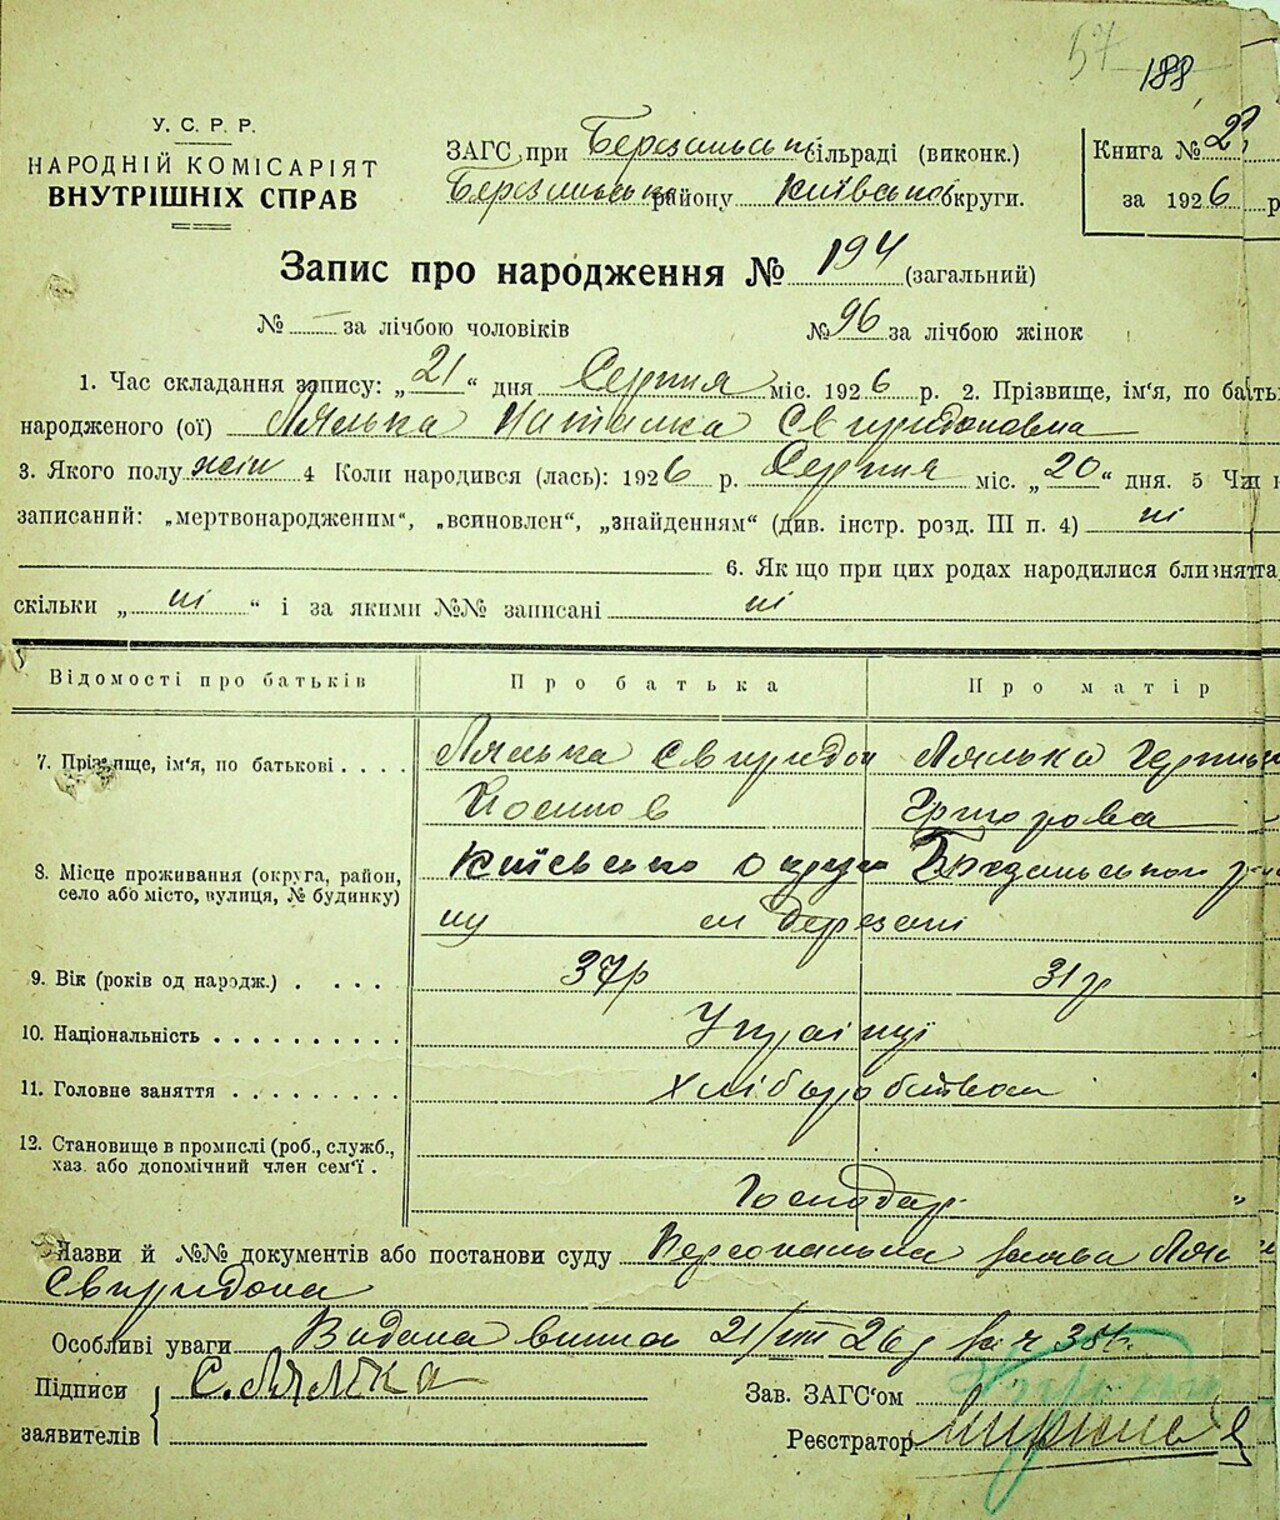 57
188
У. С. Р. Р.
НАРОДНІЙ КОМІСАРІЯТ
ВНУТРІШНІХ СПРАВ
ЗАГС при Березанськ сільраді (виконк.)
Березанськ району Київсько округи.
Книга № 2
за 1926 р
Запис про народження № 194 (загальний)
№ — за лічбою чоловіків № 96 за лічбою жінок
1. Час складання запису: „21“ дня Серпня міс. 1926 р. 2. Прізвище, ім'я, по батьк
народженого (ої) Лялька Наталка Свиридоновна
3. Якого полу жін 4 Коли народився (лась): 1926 р. Серпня міс. „20“ дня. 5 Чи н
записаний: „мертвонародженим“, „всиновлен“, „знайденням“ (див. інстр. розд. III п. 4) ні
6. Якщо при цих родах народилися близнята,
скільки „ні“ і за якими №№ записані ні
Відомості про батьків Про батька Про матір
7. Прізвище, ім'я, по батькові . . . . Лялька Свиридон Лялька
Йосипов Григорова
8. Місце проживання (округа, район, Київсько округи Березанського
село або місто, вулиця, № будинку)
ну м Березані
9. Вік (років од народж.) . . . . 37р 31р
10. Національність . . . . . . . . . . Українці
11. Головне заняття . . . . . . . . . Хліборобством
12. Становище в промислі (роб., служб.,
хаз. або допомічний член сем'ї .
Господар "
Назви й №№ документів або постанови суду Персональна заява Ляль
Свиридона
Особливі уваги Видана випис 21/VIII 26р за ч 354
Підписи С. Лялка Зав. ЗАГС'ом
заявителів Реєстратор